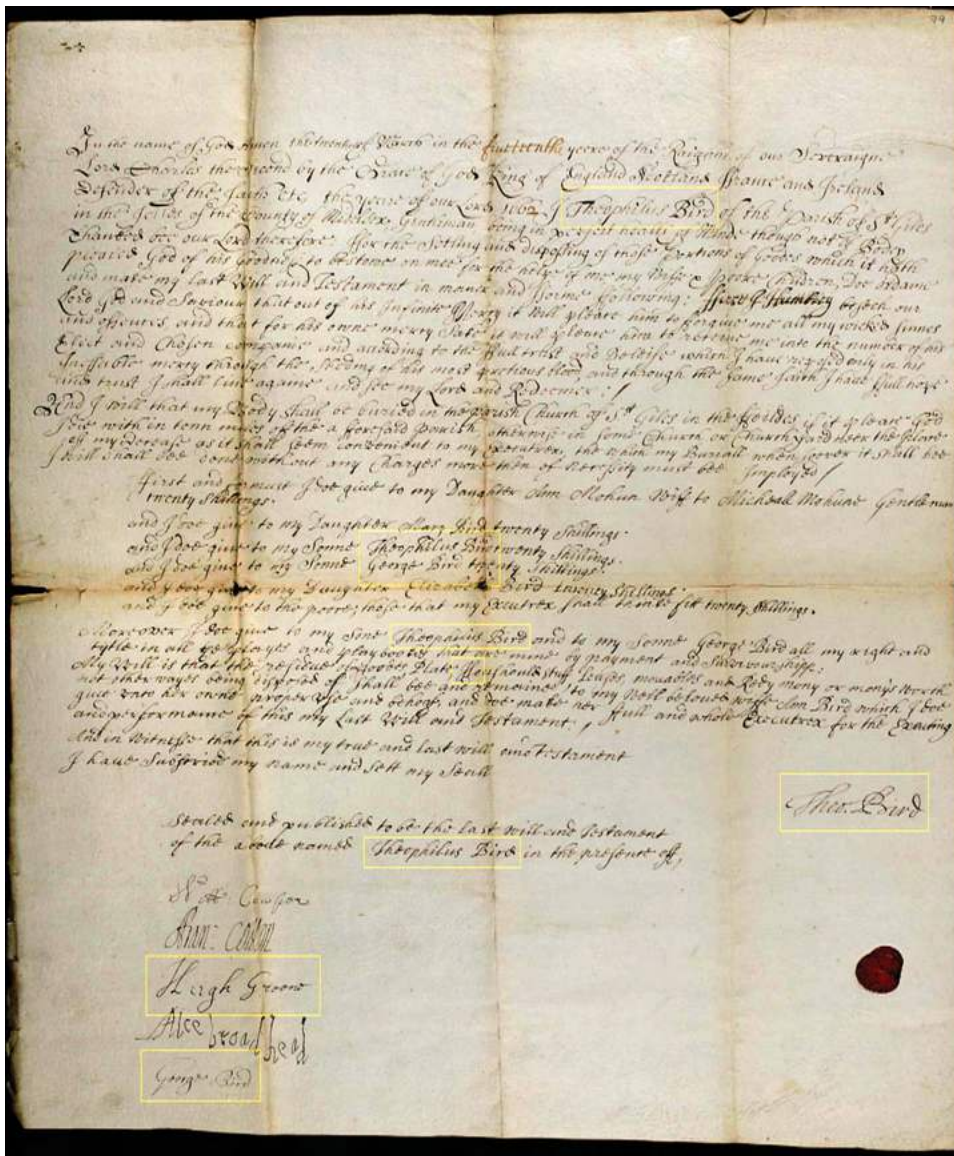 99
In the name of God Amen the twentyeth March in the fourteenth yeere of the Raigne of our Soveraigne
Lord Charles the second by the Grace of God King of England Scotland ffrance and Ireland
Defender of the faith Etc, the yeare of our Lord 1662 I Theophilus Bird of the Parish of St Giles
in the feilds of the County of Middlex, Gentiman being in perfect health of Minde though not of Body
thanked bee our Lord therefore ffor the Setling and disposing of those portions of Goods which it hath
pleased God of his Goodness to bestowe on mee for the helpe of me my Wife & Poore Children, Doe ordaine
and make my last Will and Testament in maner and fforme following: ffirst I Humbley beseech our
Lord God and Saviour that out of his Infinite Mercy it will please him to forgive me all my wicked sinnes
and offences and that for his owne mercy sake it will please him to receive me into the number of his
Elect and Chosen companie and according to the full trust and Beleife which I have reposed only in his
Ineffable mercy through the sheding of his most pretious blood, and through the same faith I have full hope
and trust I shall live againe and see my Lord and Redeemer /
And I will that my Body shall be buried in the Parish Church of St Giles in the feildes if it please God
I die with in tenn miles off the a foresaid parish otherwise in some Church or Church yard neer the place
off my decease as it shall seem convenient to my executrex, the which my Buriall when soever it shall bee
I will shall bee don without any Charges more then of necessity must bee Imployed /
ffirst and formust I doe give to my Daughter Ann Mohun Wiff to Micheall Mohune Gentleman
twenty shillings.
and I doe give to my Daughter Mary Bird twenty Shillings.
and I doe give to my Sonne Theophilus Bird twenty Shillings.
and I doe give to my Sonne George Bird twenty Shillings.
and I doe give to my Daughter Elizabeth Bird twenty Shillings
and I doe give to the poore; those that my Executrex shall thinke fitt twenty Shillings.
Moreover I doe give to my Sone Theophilus Bird and to my Sonne George Bird all my right and
tytle in all ye playes and playbookes that are mine by payment and Survivourshipp:
My Will is that the residue of Goodes Plate, Houshould stuff Leases, movables and Redy mony or monys worth
not other wayes being disposed of shall bee and remaine to my Well beloved wiffe Ann Bird which I doe
give unto her owne proper use and behoof, and doe make her full and whole Executrex for the Executing
and performeinge of this my Last Will and Testament /
And in Witnesse that this is my true and last will and Testament
I have Subscribd my name and sett my Seall
Theo. Bird
Sealed and published to be the last will and Testament
of the above named Theophilus Bird in the presence off,
Hugh Groome
Alce broadhead
George Bird